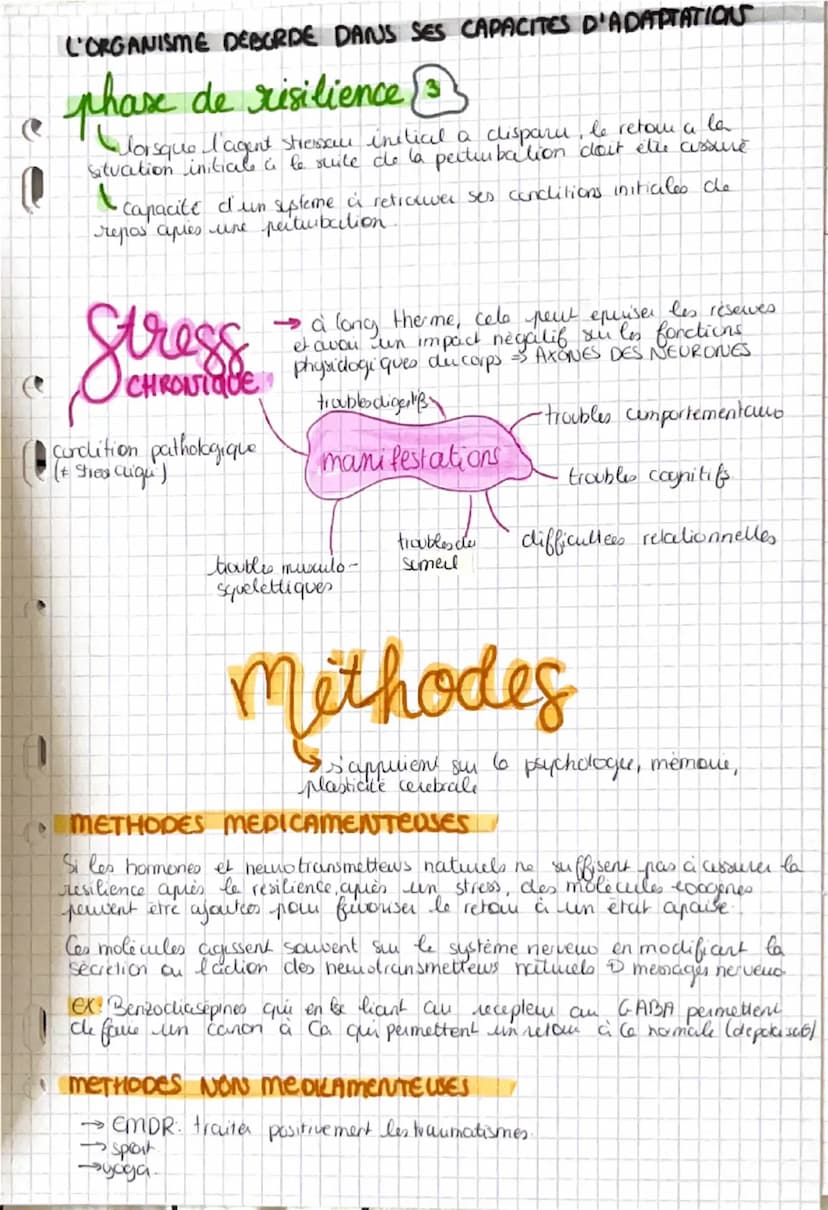 L'ORGANISME DEBORDE DANS SES CAPACITES D'ADAPTATION
phase de résilience 3
lorsque l'agent stresseau initial a disparu, le retour a la
situation initiale à la suite de la perturbation doit être assuré
capacité d'un système à retrouver ses conditions initiales de
repos après une perturbation.
Stress
CHRONIQUE
→ à long therme, cela peut epuiser les réserves
et avoir un impact négatif sur les fonctions
physiologiques du corps ⇒ AXONES DES NEURONES
condition pathologique
(≠ stress aigu)
troubles digestifs
manifestations
troubles comportementaux
troubles cognitifs
difficultees relationnelles
troubles du
someil
troubles musculo-
squelettiques
Méthodes
s'appuient sur la psychologie, mémoire,
plasticité cerebrale
METHODES MEDICAMENTEUSES
Si les hormones et neurotransmetteurs naturels ne suffisent pas à assurer la
résilience après la résilience, après un stress, des molécules exogènes
peuvent être ajoutées pour favoriser le retour à un état apaisé.
Ces molécules agissent souvent sur le système nerveux en modifiant la
sécrétion ou l'action des neurotransmetteurs naturels messages nerveux.
ex: Benzodiasépines qui en se liant au recepteur au GABA permettent
de faire un canon à Ca qui permettent un retour à la normale
METHODES NON MEDICAMENTEUSES
→ EMDR: traiter positivement les traumatismes.
→ sport
→ yoga.